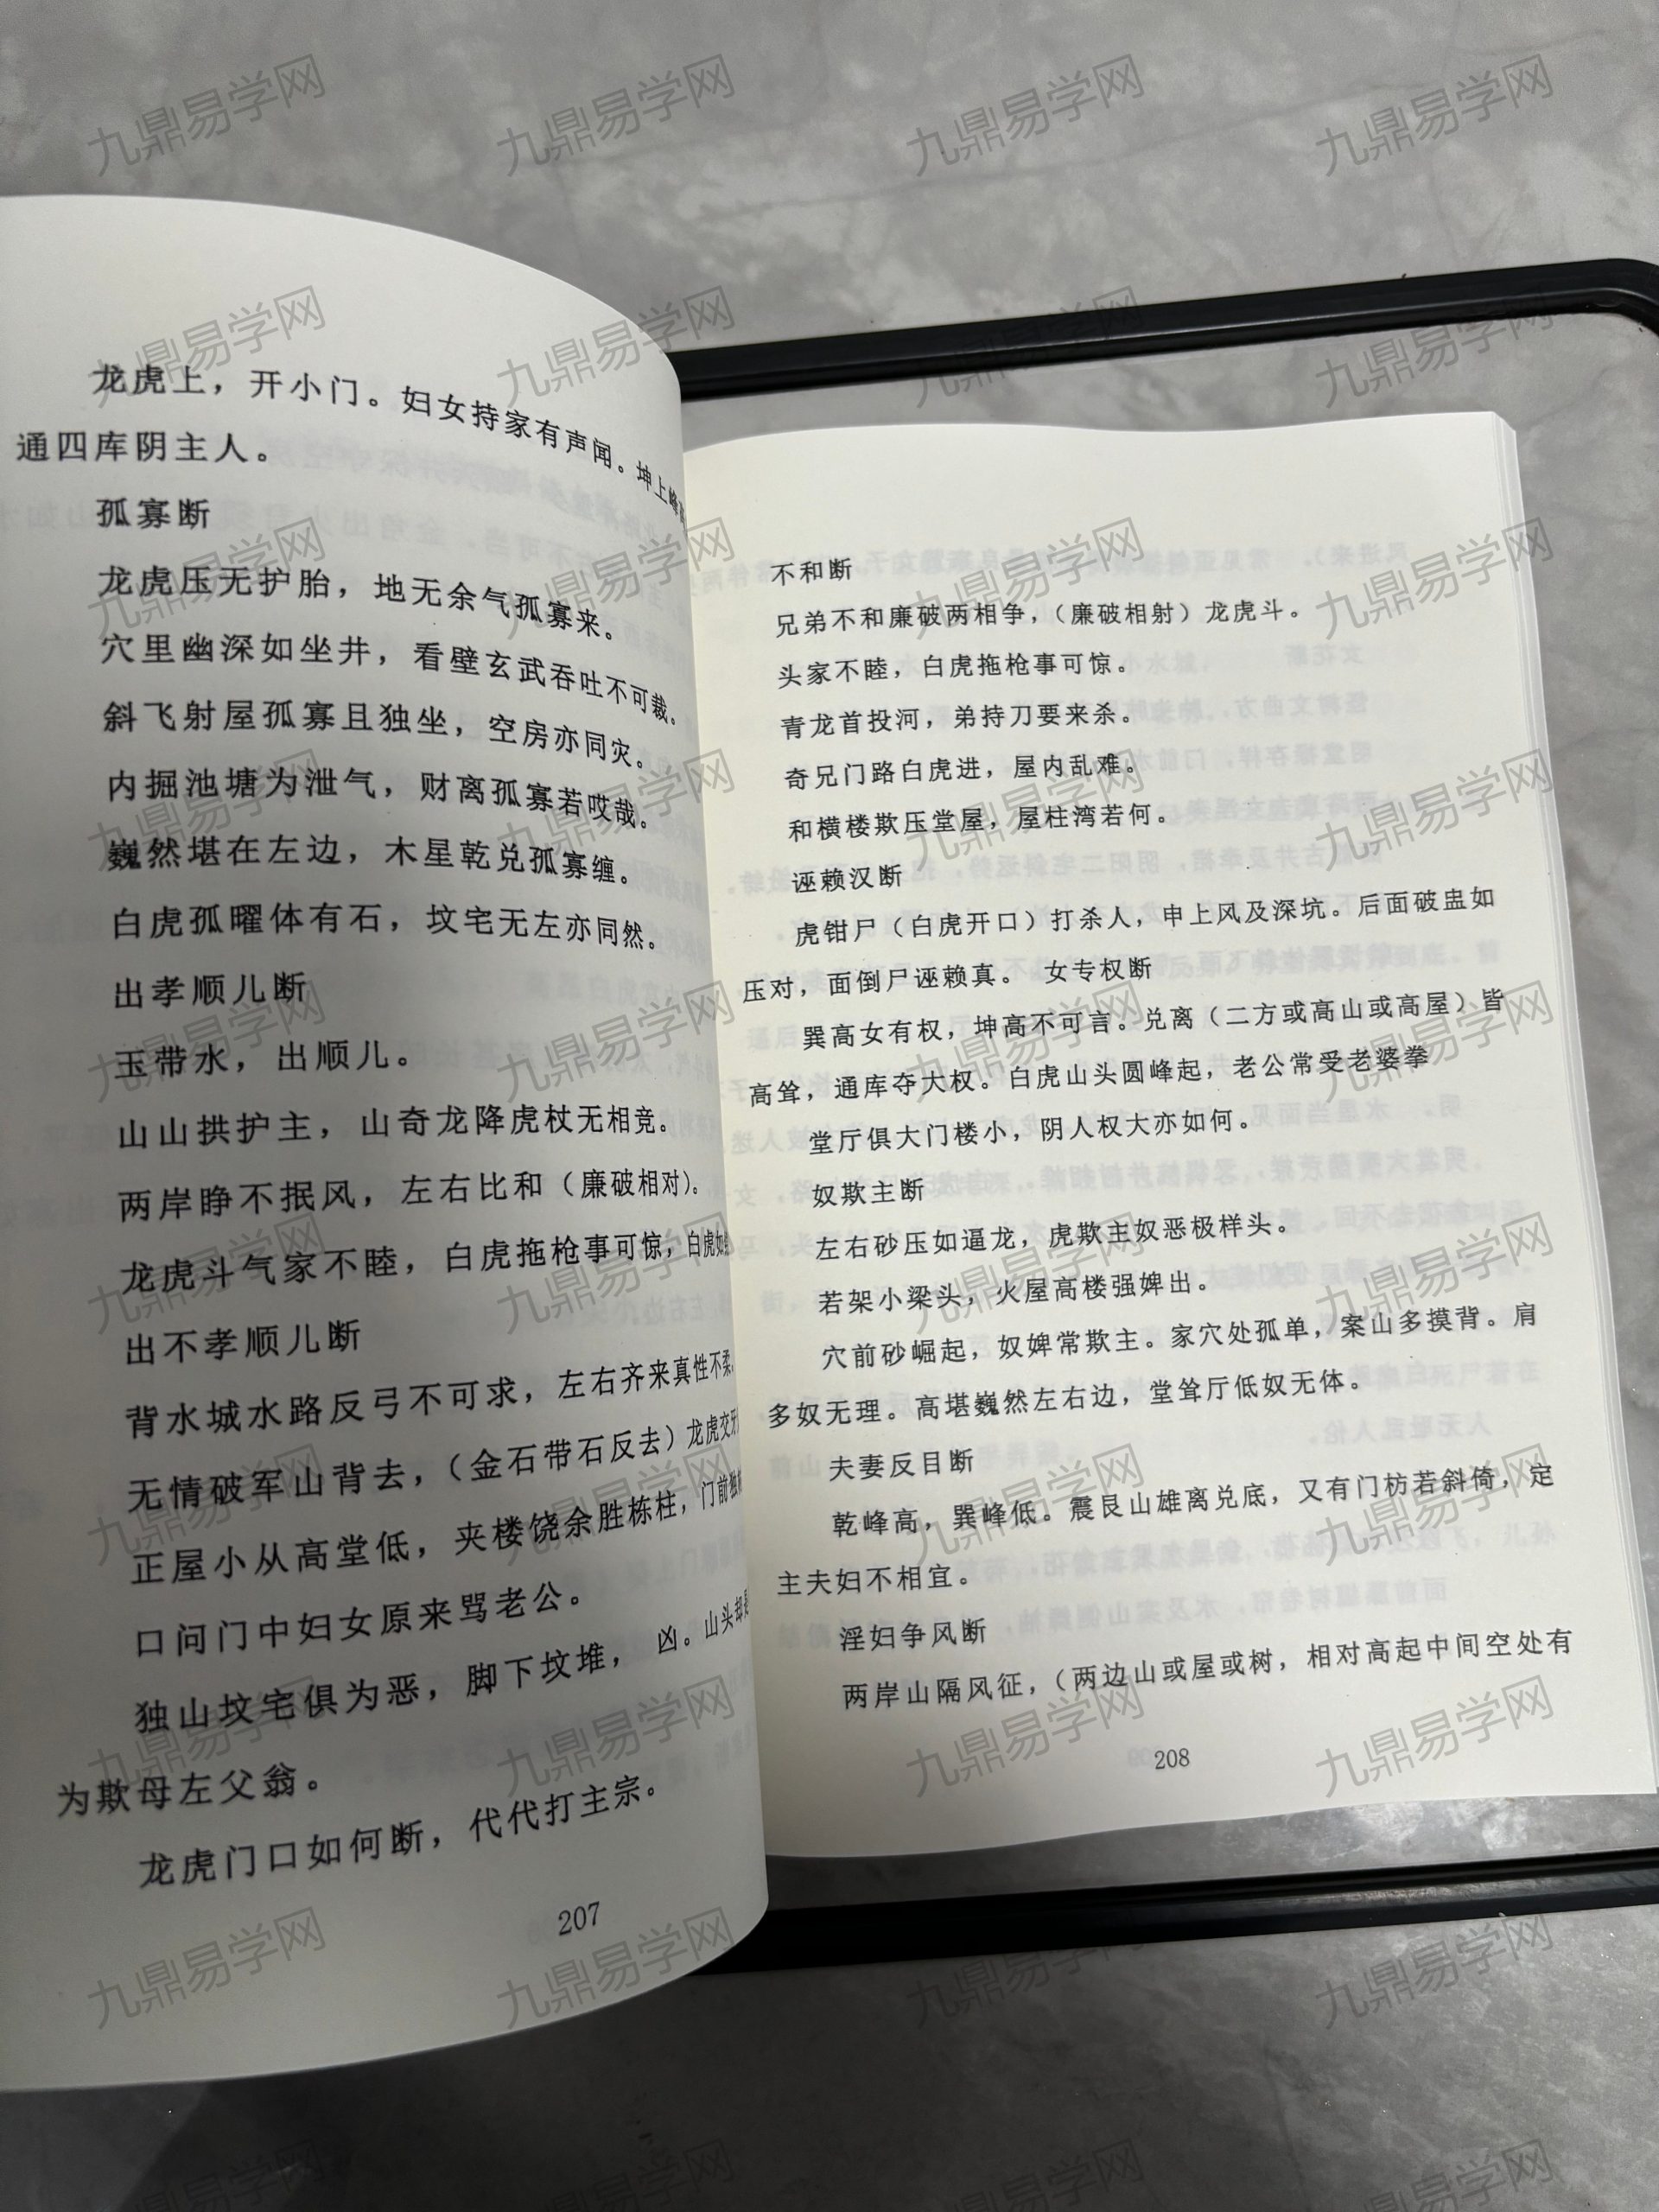 龙虎上，开小门。妇女持家有声闻。坤上峰
通四库阴主人。
孤寡断
龙虎压无护胎，地无余气孤寡来。
穴里幽深如坐井，看壁玄武吞吐不可裁。
斜飞射屋孤寡且独坐，空房亦同灾。
内掘池塘为泄气，财离孤寡若哎哉。
巍然堪在左边，木星乾兑孤寡缠。
白虎孤曜体有石，坟宅无左亦同然。
出孝顺儿断
玉带水，出顺儿。
山山拱护主，山奇龙降虎杖无相竞。
两岸睁不抿风，左右比和（廉破相对）。
龙虎斗气家不睦，白虎拖枪事可惊，白虎如
出不孝顺儿断
背水城水路反弓不可求，左右齐来真性不柔。
无情破军山背去，（金石带石反去）龙虎交牙
正屋小从高堂低，夹楼饶余胜栋柱，门前独
口问门中妇女原来骂老公。
独山坟宅俱为恶，脚下坟堆， 凶。山头却
为欺母左父翁。
龙虎门口如何断，代代打主宗。
207
不和断
兄弟不和廉破两相争，（廉破相射）龙虎斗。
头家不睦，白虎拖枪事可惊。
青龙首投河，弟持刀要来杀。
奇兄门路白虎进，屋内乱难。
和横楼欺压堂屋，屋柱湾若何。
诬赖汉断
虎钳尸（白虎开口）打杀人，申上风及深坑。后面破蛊如
压对，面倒尸诬赖真。 女专权断
巽高女有权，坤高不可言。兑离（二方或高山或高屋）皆
高耸，通库夺大权。白虎山头圆峰起，老公常受老婆拳
堂厅俱大门楼小，阴人权大亦如何。
奴欺主断
左右砂压如逼龙，虎欺主奴恶极样头。
若架小梁头，火屋高楼强婢出。
穴前砂崛起，奴婢常欺主。家穴处孤单，案山多摸背。肩
多奴无理。高堪巍然左右边，堂耸厅低奴无体。
夫妻反目断
乾峰高，巽峰低。震艮山雄离兑底，又有门枋若斜倚，定
主夫妇不相宜。
淫妇争风断
两岸山隔风征，（两边山或屋或树，相对高起中间空处有
208
九鼎易学网